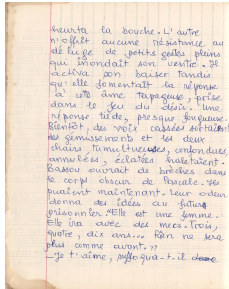 heurta la bouche. L'autre
n'offrit aucune résistance au
déluge de petits gestes pleins
qui inondait son ventre. Il
activa son baiser tandis
qu'elle fomentait la réponse
à cette âme tapageuse, prise
dans le jeu du désir. Une
réponse tiède, presque fougueuse.
Bientôt, des voix cassées sortaient
des gémissements et les deux
chairs, tumultueuses, confondues,
annulées, éclatées haletaient.
Bassou ouvrait de brèches dans
le corps obscur de Pascale. Ils
puaient maintenant. Leur odeur
donna des idées au futur
prisonnier. "Elle est une femme.
Elle ira avec des mecs. Trois,
quatre, dix ans... Rien ne sera
plus comme avant."
— Je t'aime, suffoqua-t-il